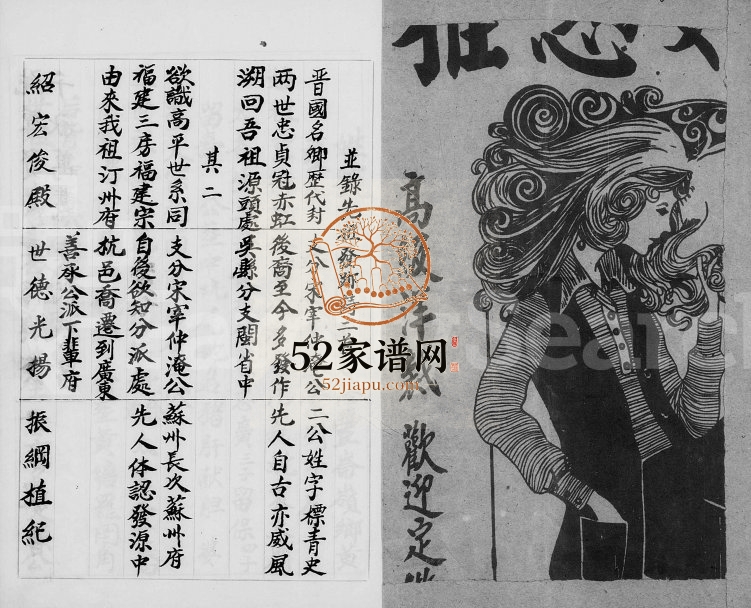 高
歡迎定
並錄先
晉國名卿歴代封 支分宋宰仲淹公 二公姓字標青史
两世忠貞冠赤虹 後裔至今多發作 先人自古亦威風
溯回吾祖源頭處 吳縣分支閩省中
其二
欲識高平世系同 支分宋宰仲淹公 蘇州長次蘇州府
福建三房福建宗 自後欲知分派處 先人体認發源中
由來我祖汀州府 杭邑喬遷到廣東
善承公派下輩府
紹宏俊殿 世德光揚 振綱植紀
52家谱网
52jiapu.com